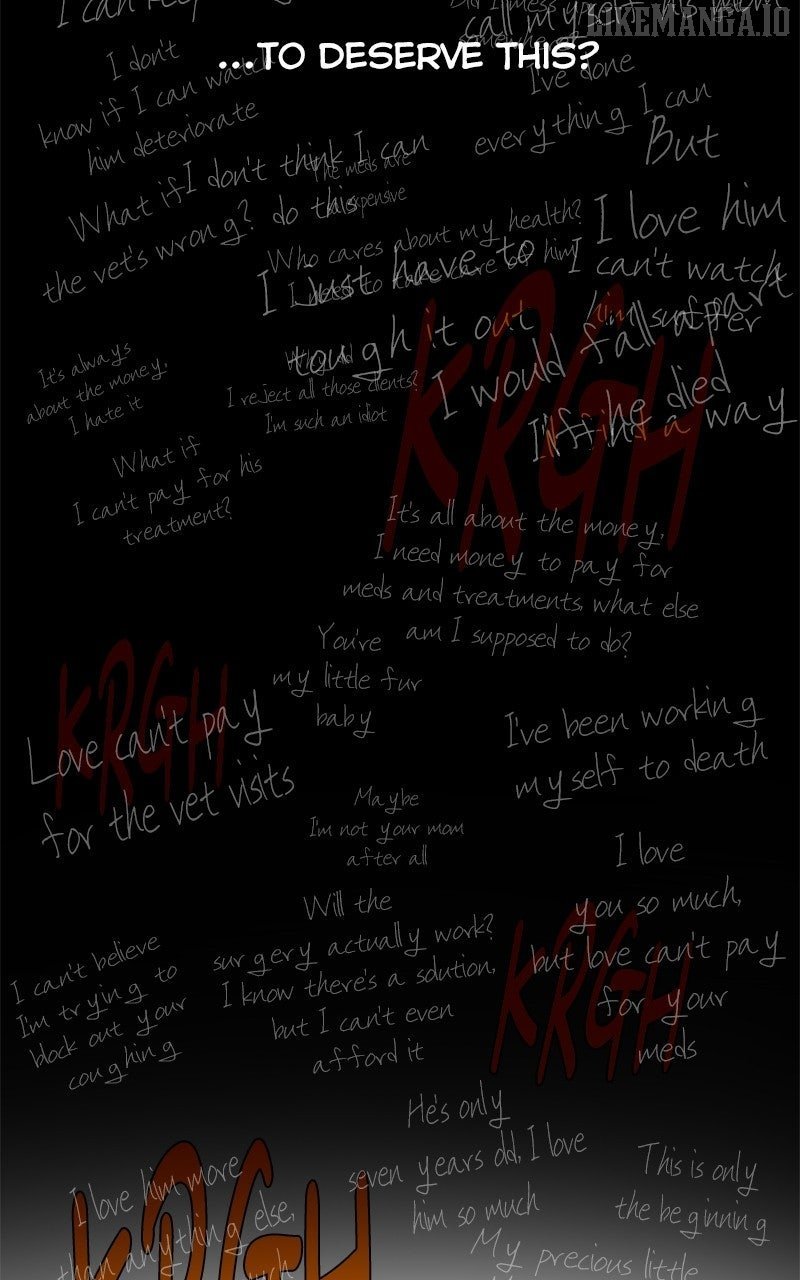 I can
call myself his mom
LIKEMANGA.IO
...TO DESERVE THIS?
I don't
know if I can watch
him deteriorate
I've done
everything I can
But
What if
the vet's wrong?
I don't think I can
do this
The meds are
expensive
Who cares about my health?
I need to take care of him
I just have to
tough it out
I love him
I can't watch
him suffer
I would fall apart
if he died
I'll find a way
It's always
about the money,
I hate it
Why did
I reject all those clients?
I'm such an idiot
KRGH
What if
I can't pay for his
treatment?
It's all about the money,
I need money to pay for
meds and treatments, what else
am I supposed to do?
You're
my little fur
baby
KRGH
Love can't pay
for the vet visits
I've been working
myself to death
Maybe
I'm not your mom
after all
I love
you so much,
but love can't pay
for your
meds
KRGH
Will the
surgery actually work?
I know there's a solution,
but I can't even
afford it
I can't believe
I'm trying to
block out your
coughing
He's only
seven years old, I love
him so much
This is only
the beginning
I love him more
than anything else,
KRGH
My precious little